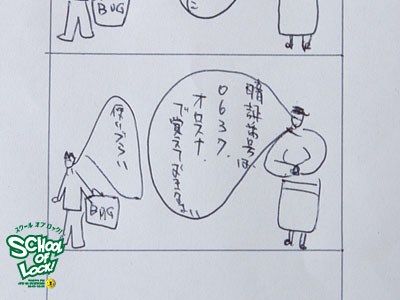 BAG
暗証番号は、
0637.
オロスナ.
で覚えておきなさい
使いづらい
BAG
スクール オブ ロック!
SCHOOL
OF
LOCK!